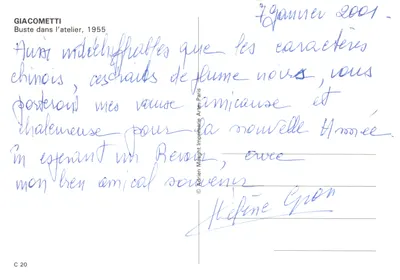 GIACOMETTI
Buste dans l'atelier, 1955
7 Janvier 2001.
Aussi indéchiffrables que les caractères
chinois, ces traits de plume nous, vous
porteront mes vœux amicaux et
chaleureuse pour la nouvelle Année.
En espérant un Revoir, avec
mon bien amical souvenir
Hélène
© Adrien Maeght Imprimerie Arte Paris
C 20